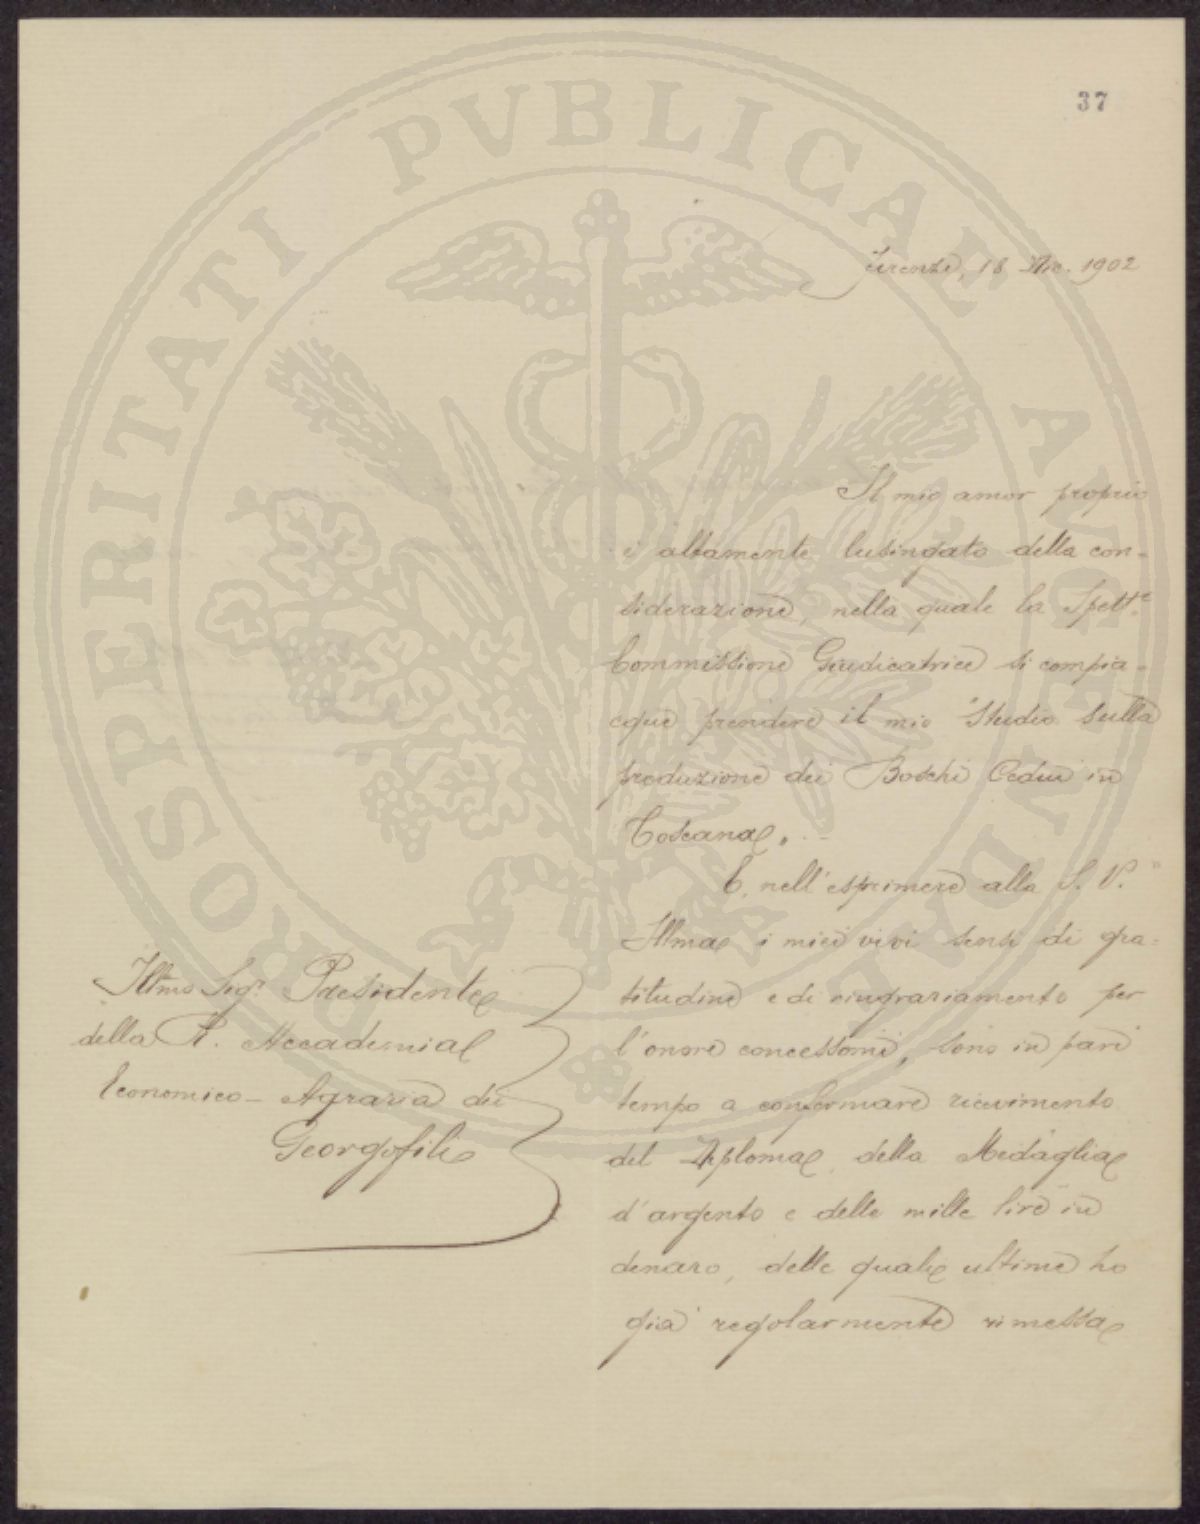 37
PROSPERITATI PUBLICAE AUGENDAE
Firenze, 18 Dic. 1902
Il mio amor proprio
è altamente lusingato della con-
siderazione, nella quale la Spett.e
Commissione Giudicatrice si compia-
cque prendere il mio "Studio sulla
produzione dei Boschi Cedui in
Toscana".
E, nell'esprimere alla S. V.
Illma i miei vivi sensi di gra-
titudine e di ringraziamento per
l'onore concessomi, sono in pari
tempo a confermare ricevimento
del Diploma, della Medaglia
d'argento e delle mille lire in
denaro, delle quali ultime ho
già regolarmente rimessa
Illmo Sigr. Presidente
della R. Accademia
Economico-Agraria dei
Georgofili